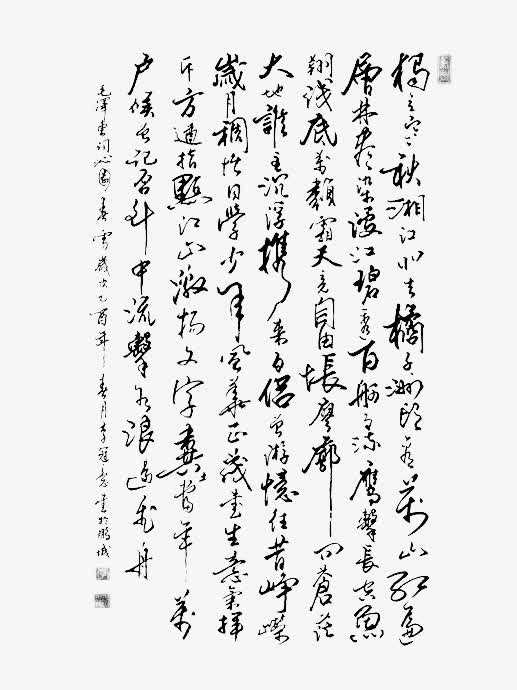 獨立寒秋湘江北去橘子洲頭看萬山紅遍
層林盡染漫江碧透百舸爭流鷹擊長空魚
翔淺底萬類霜天競自由悵寥廓問蒼茫
大地誰主沉浮攜來百侶曾游憶往昔崢嶸
歲月稠恰同學少年風華正茂書生意氣揮
斥方遒指點江山激揚文字糞土當年萬
户候曾記否到中流擊水浪遏飛舟
毛澤東詞沁園春雪歲次乙酉年春月李冠書於鵬城